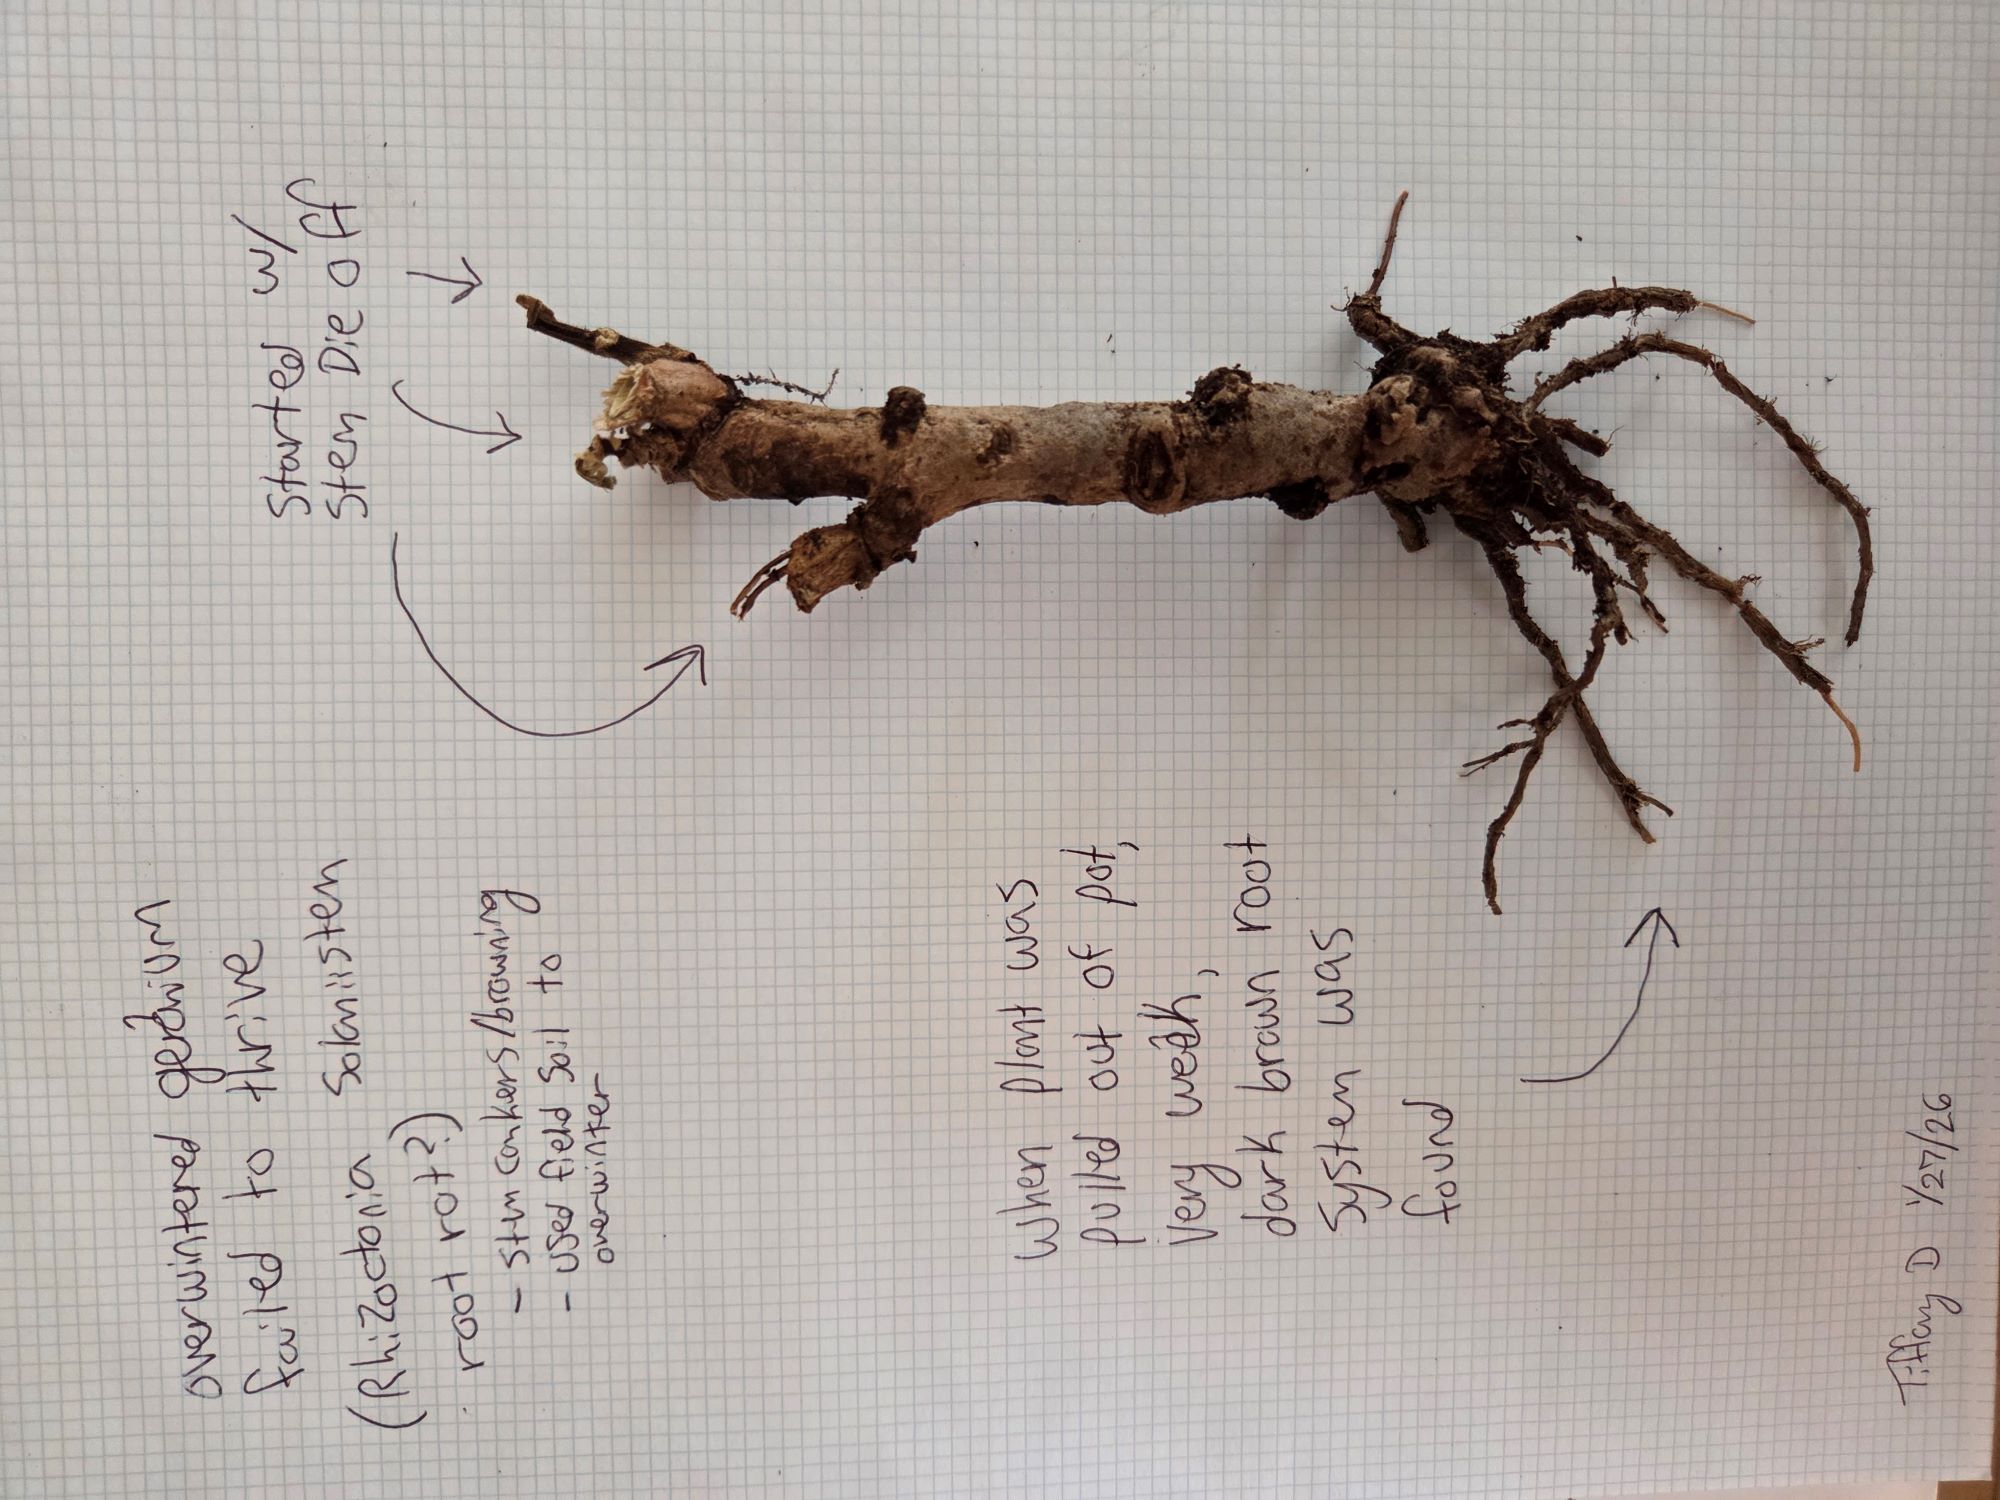 overwintered geranium
failed to thrive
(Rhizoctonia Solaniisten
root rot?)
- stem cankers/browning
- used field soil to
overwinter
Started w/
Stem Die off
When plant was
pulled out of pot,
very weak,
dark brown root
system was
found
Tiffany D 1/27/26